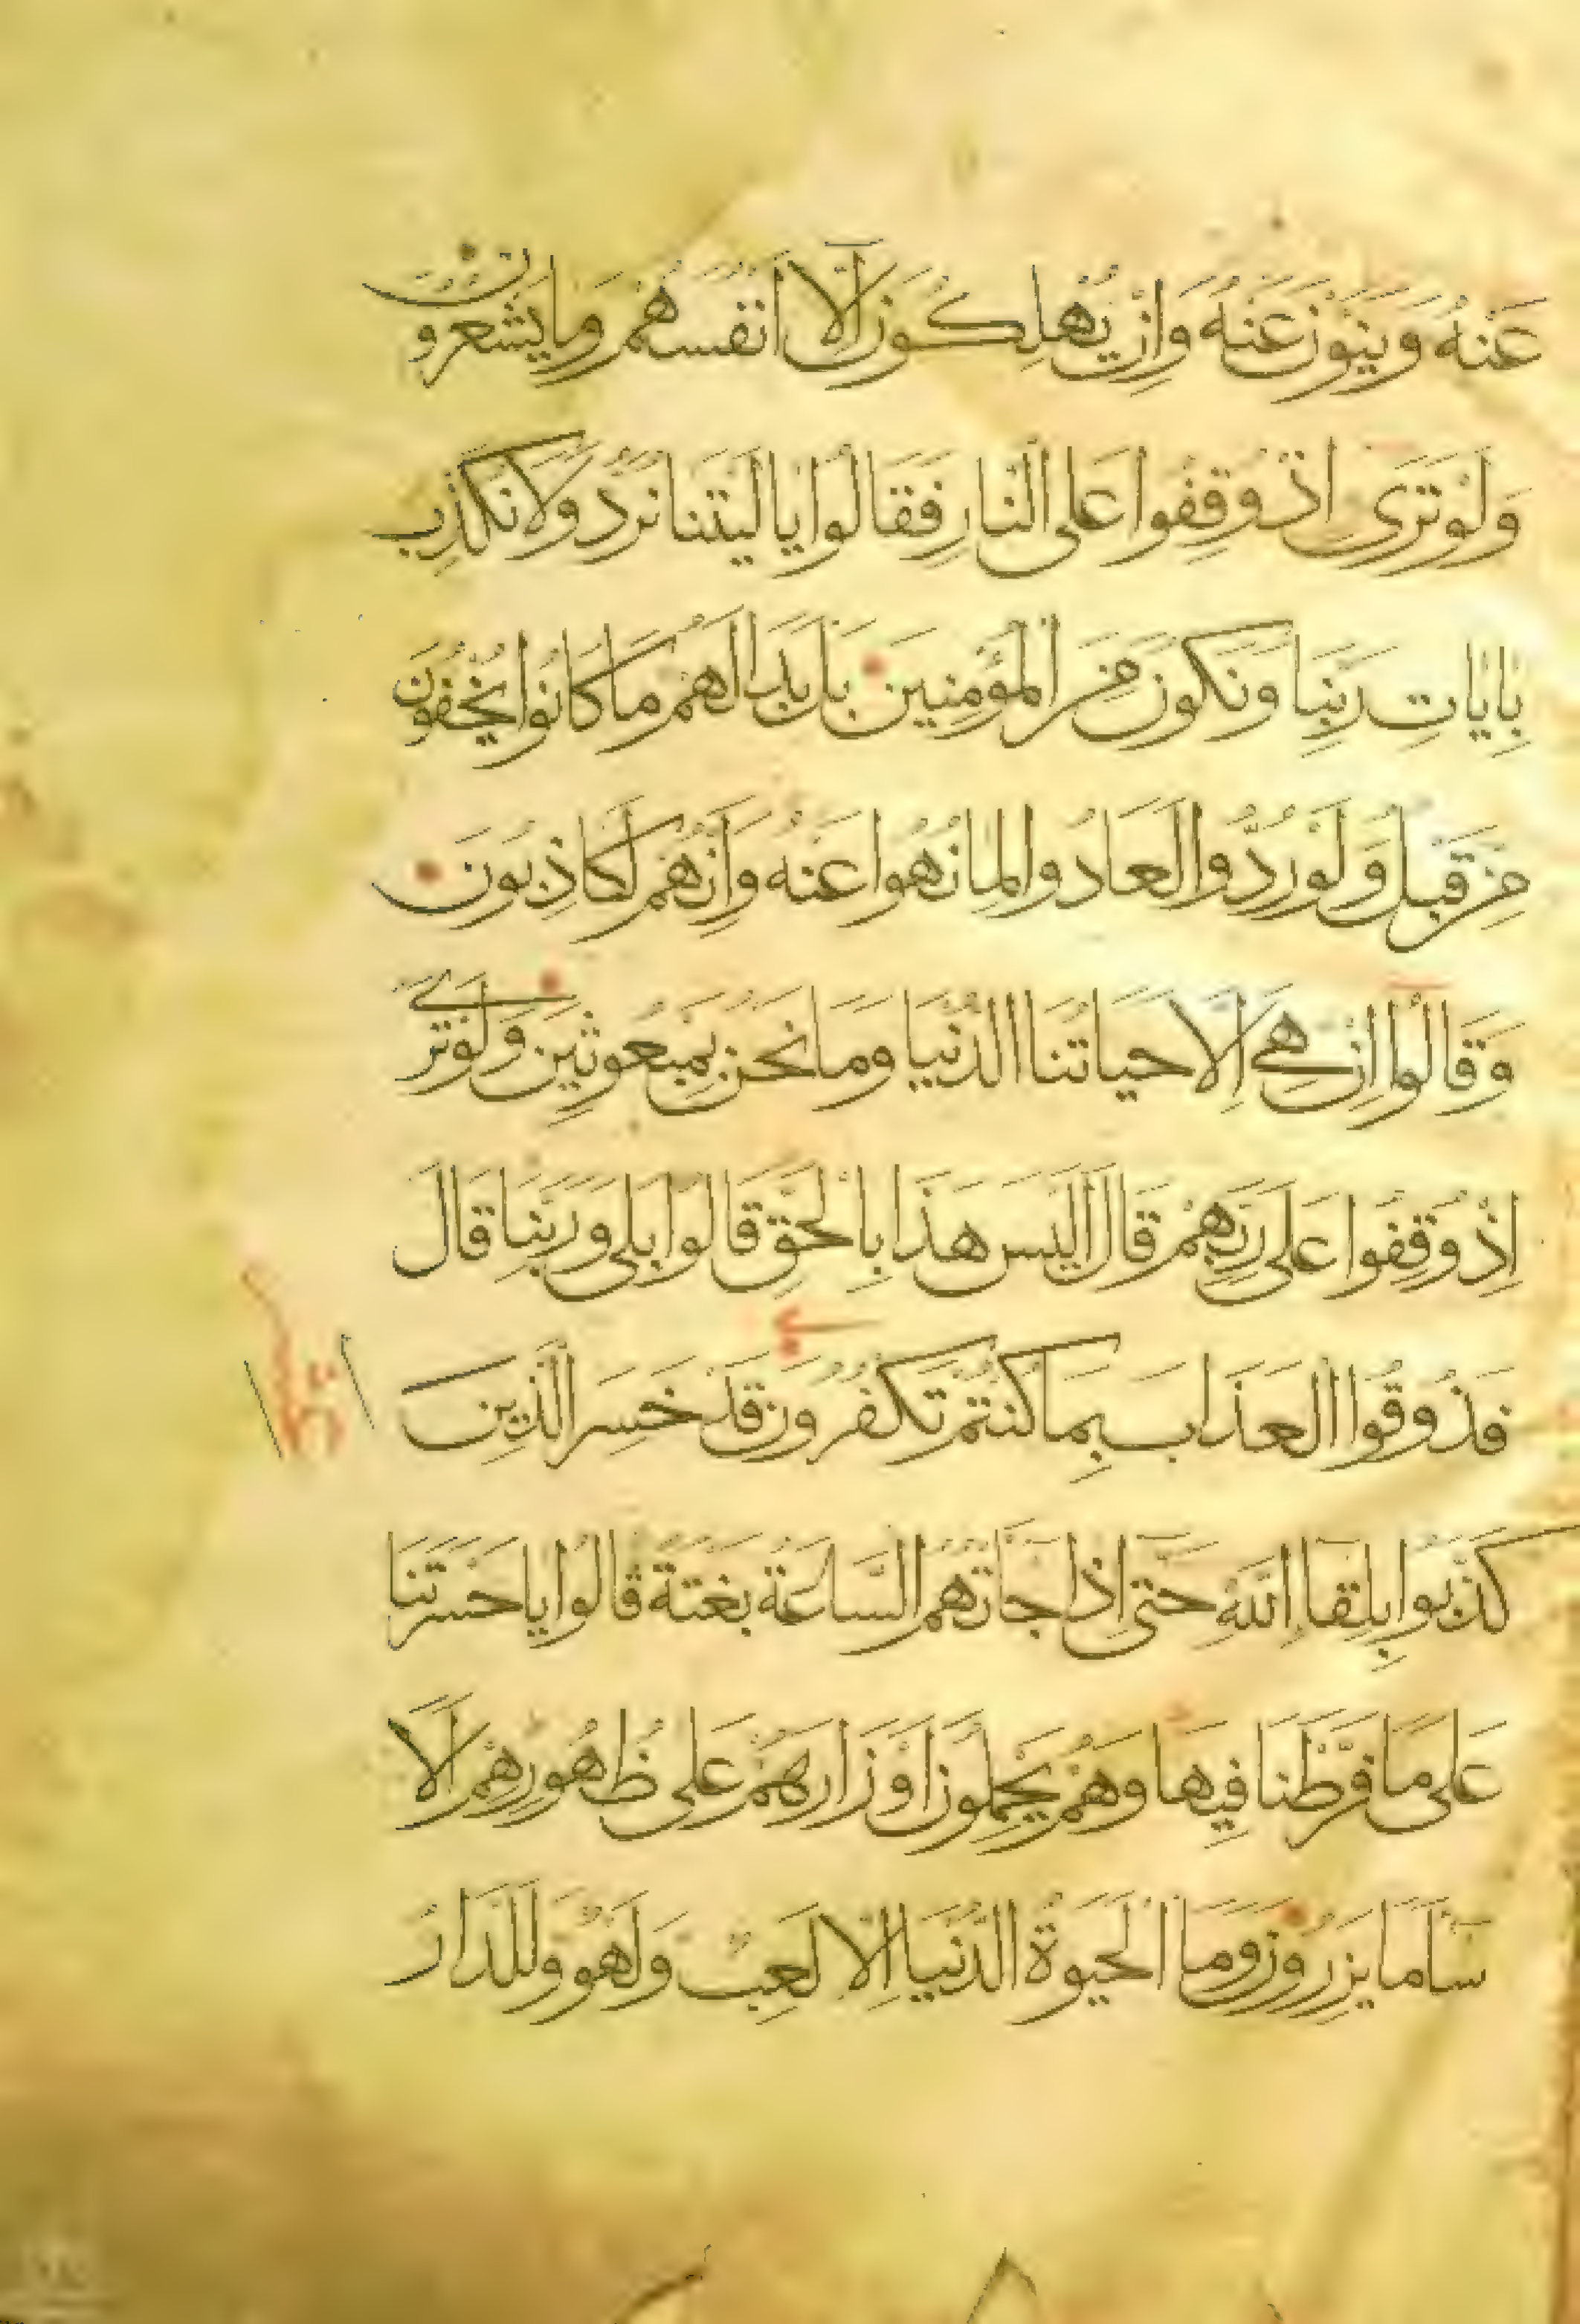 عَنْهُ وَيَنْئَوْنَ عَنْهُ وَاِنْ يُهْلِكُونَ اِلَّا اَنْفُسَهُمْ وَمَا يَشْعُرُونَ
وَلَوْ تَرَى اِذْ وُقِفُوا عَلَى النَّارِ فَقَالُوا يَا لَيْتَنَا نُرَدُّ وَلَا نُكَذِّبَ
بِايَاتِ رَبِّنَا وَنَكُونَ مِنَ الْمُؤْمِنِينَ بَلْ بَدَا لَهُمْ مَا كَانُوا يُخْفُونَ
مِنْ قَبْلُ وَلَوْ رُدُّوا لَعَادُوا لِمَا نُهُوا عَنْهُ وَاِنَّهُمْ لَكَاذِبُونَ
وَقَالُوا اِنْ هِيَ اِلَّا حَيَاتُنَا الدُّنْيَا وَمَا نَحْنُ بِمَبْعُوثِينَ وَلَوْ تَرَى
اِذْ وُقِفُوا عَلَى رَبِّهِمْ قَالَ اَلَيْسَ هَذَا بِالْحَقِّ قَالُوا بَلَى وَرَبِّنَا قَالَ
فَذُوقُوا الْعَذَابَ بِمَا كُنْتُمْ تَكْفُرُونَ قَدْ خَسِرَ الَّذِينَ
كَذَّبُوا بِلِقَا اللَّهِ حَتَّى اِذَا جَاتْهُمُ السَّاعَةُ بَغْتَةً قَالُوا يَا حَسْرَتَنَا
عَلَى مَا فَرَّطْنَا فِيهَا وَهُمْ يَحْمِلُونَ اَوْزَارَهُمْ عَلَى ظُهُورِهِمْ اَلَا
سَا مَا يَزِرُونَ وَمَا الْحَيَوةُ الدُّنْيَا اِلَّا لَعِبٌ وَلَهْوٌ وَلَلدَّارُ